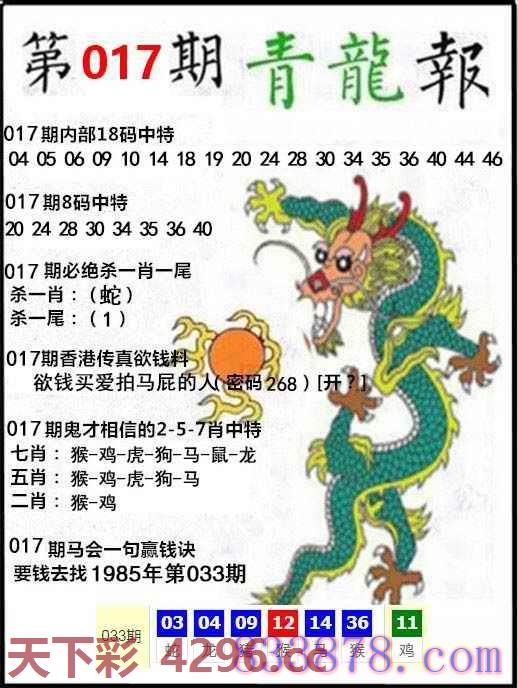 第017期青龍報
017期内部18码中特
04 05 06 09 10 14 18 19 20 24 28 30 34 35 36 40 44 46
017期8码中特
20 24 28 30 34 35 36 40
017期必绝杀一肖一尾
杀一肖：（蛇）
杀一尾：（1）
017期香港传真欲钱料
欲钱买爱拍马屁的人(密码268）[开？]
017期鬼才相信的2-5-7肖中特
七肖：猴-鸡-虎-狗-马-鼠-龙
五肖：猴-鸡-虎-狗-马
二肖：猴-鸡
017期马会一句赢钱诀
要钱去找1985年第033期
033期 03 04 09 12 14 36 11
蛇 龙 猪 猴 马 猴 鸡
天下彩 4296.cc
633878.com